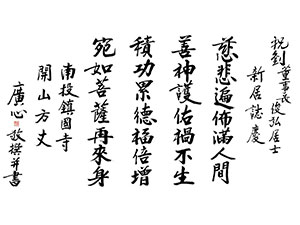 祝劉董事長俊弘居士
新居誌慶
慈悲遍佈滿人間
善神護佑禍不生
積功累德福倍增
宛如菩薩再來身
南投鎮國寺
開山方丈
廣心敬撰并書